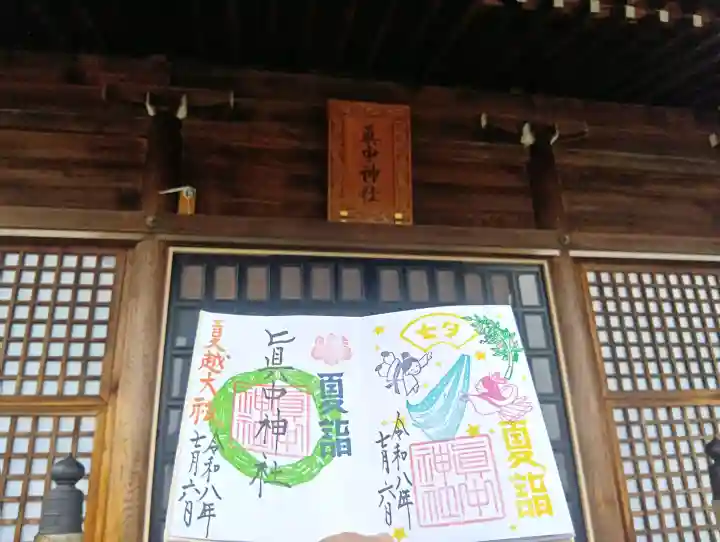 眞中神社
夏越大祓
眞中神社
夏詣
令和八年
七月六日
眞中神社
七夕
夏詣
令和八年
七月六日
眞中神社